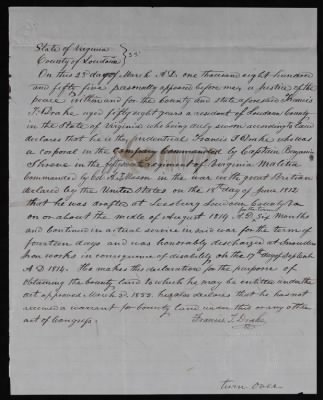 State of Virginia
County of Loudoun } SS
On this 2d day of March A.D. one thousand eight hundred
and fifty five personally appeared before me, a justice of the
peace within and for the County and state aforesaid Francis
T. Drake aged fifty eight years a resident of Loudoun County
in the State of Virginia who being duly sworn according to law
declares that he is the identical Francis T. Drake who was
a corporal in the Company Commanded by Captain
Shreve in the Regiment of Virginia Malitia
Commanded by Col. in the war with great Britian
declared by the United States on the 18th day of June 1812
that he was drafted at Leesburg Loudoun County Va
on or about the middle of August 1814 A.D. for the term of six months
and Continued in actual service in said war for the term of
fourteen days and was honorably discharged at Snowden
Iron works in consequence of disability on the 17th day of September
A.D. 1814. He makes this declaration for the purpose of
obtaining the bounty land to which he may be entitled under the
act approved March 3d. 1855. he also declares that he has not
received a warrant for bounty land under this or any other
act of Congress.
Francis T. Drake
turn over